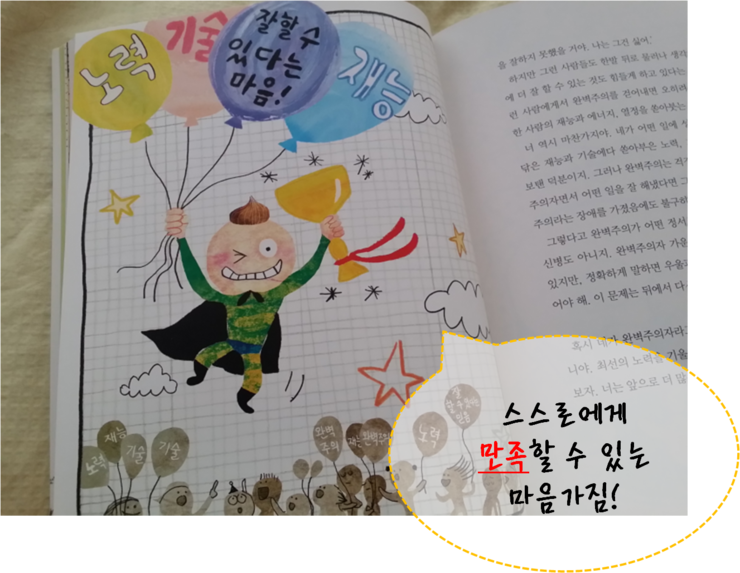 노력
기술
잘할 수
있다는
마음!
재능
을 잘하지 못했을 거야. 나는 그건 싫어.'
하지만 그런 사람들도 한발 뒤로 물러나 생각
에 더 잘 할 수 있는 것도 힘들게 하고 있다는
런 사람에게서 완벽주의를 걷어내면 오히려
한 사람의 재능과 에너지, 열정을 쏟아붓는
너 역시 마찬가지야. 네가 어떤 일에 성
닮은 재능과 기술에다 쏟아부은 노력,
보탠 덕분이지. 그러나 완벽주의는
주의자면서 어떤 일을 잘 해냈다면 그
주의라는 장애를 가졌음에도 불구하
그렇다고 완벽주의가 어떤 정서
신병도 아니지. 완벽주의자 가운
있지만, 정확하게 말하면 우울
어야 해. 이 문제는 뒤에서 다
혹시 네가 완벽주의자라
나야. 최선의 노력을 기울
보자. 너는 앞으로 더 많
재능
노력
기술
기술
완벽
주의
노력
스스로에게
만족할 수 있는
마음가짐!